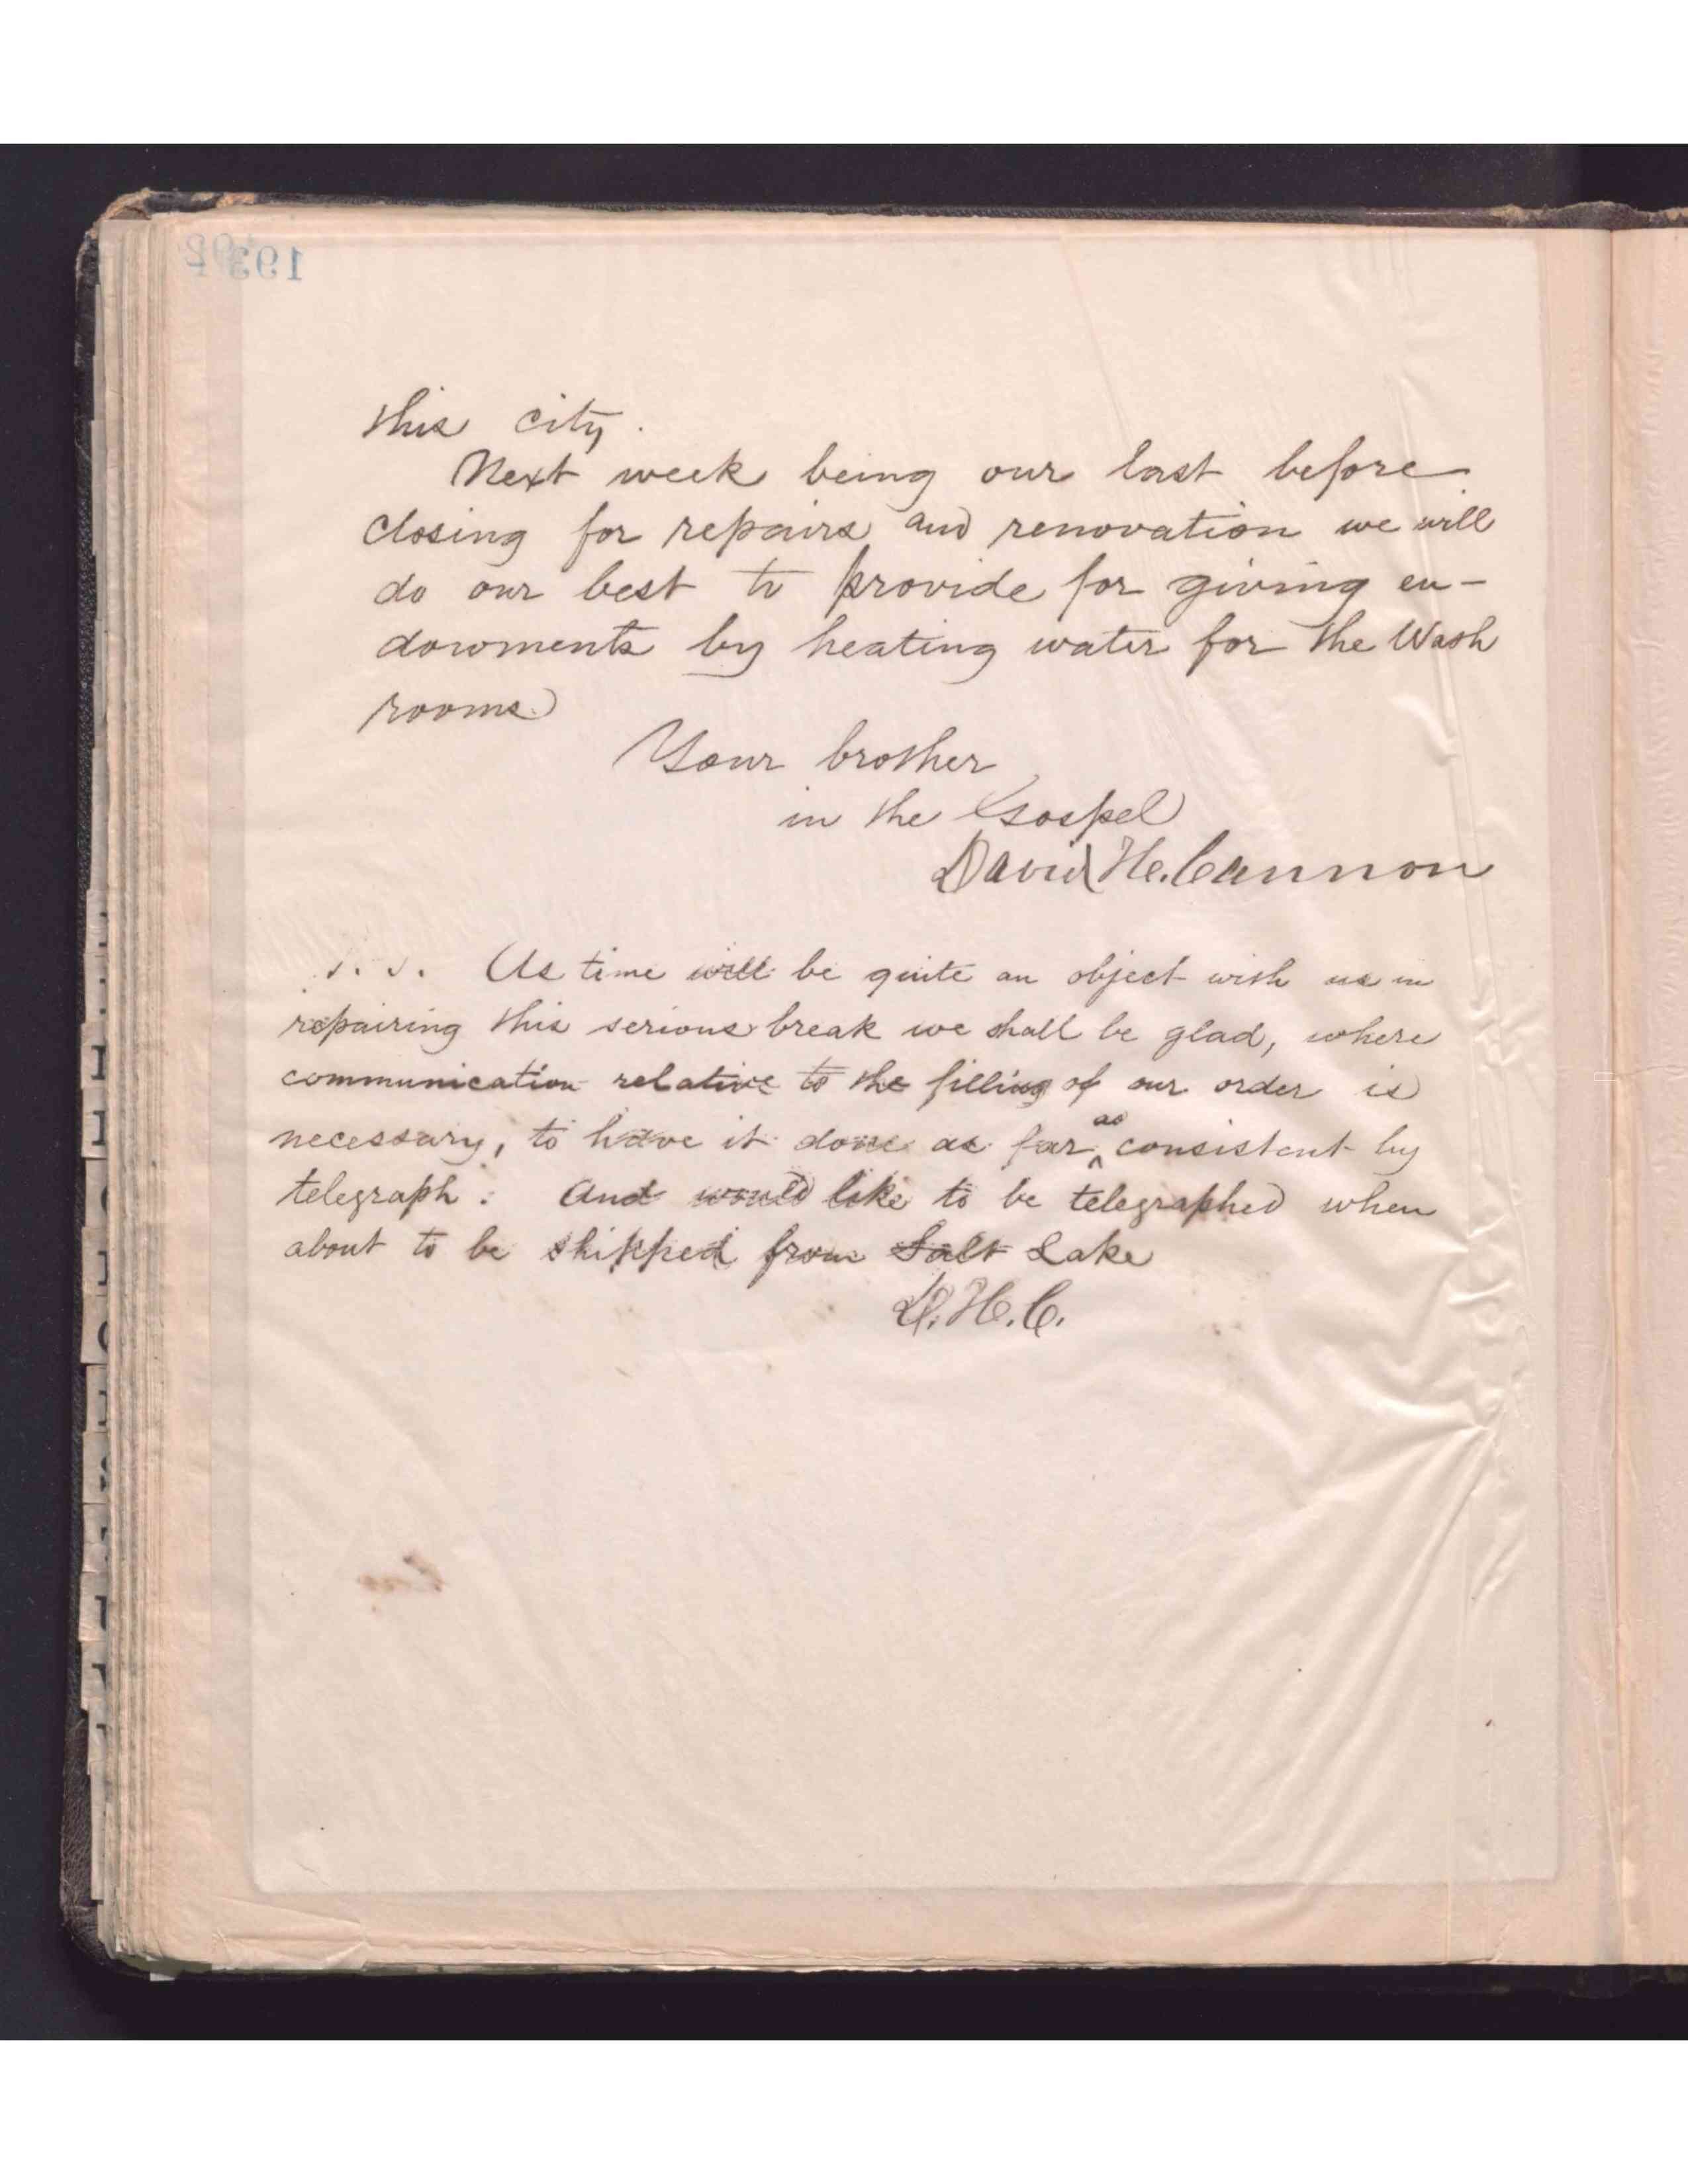 this city.
Next week being our last before
closing for repairs and renovation we will
do our best to provide for giving en-
dowments by heating water for the Wash
rooms.
Your brother
in the Gospel
David H. Cannon
As time will be quite an object with us in
repairing this serious break we shall be glad, where
communication relative to the filling of our order is
necessary, to have it done as far ^as consistent by
telegraph. And would like to be telegraphed when
about to be shipped from Salt Lake
D. H. C.